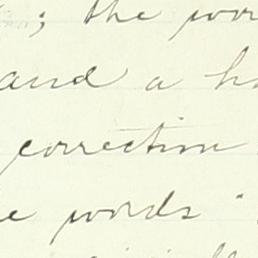 ; the wor
and a h
correction
e words "